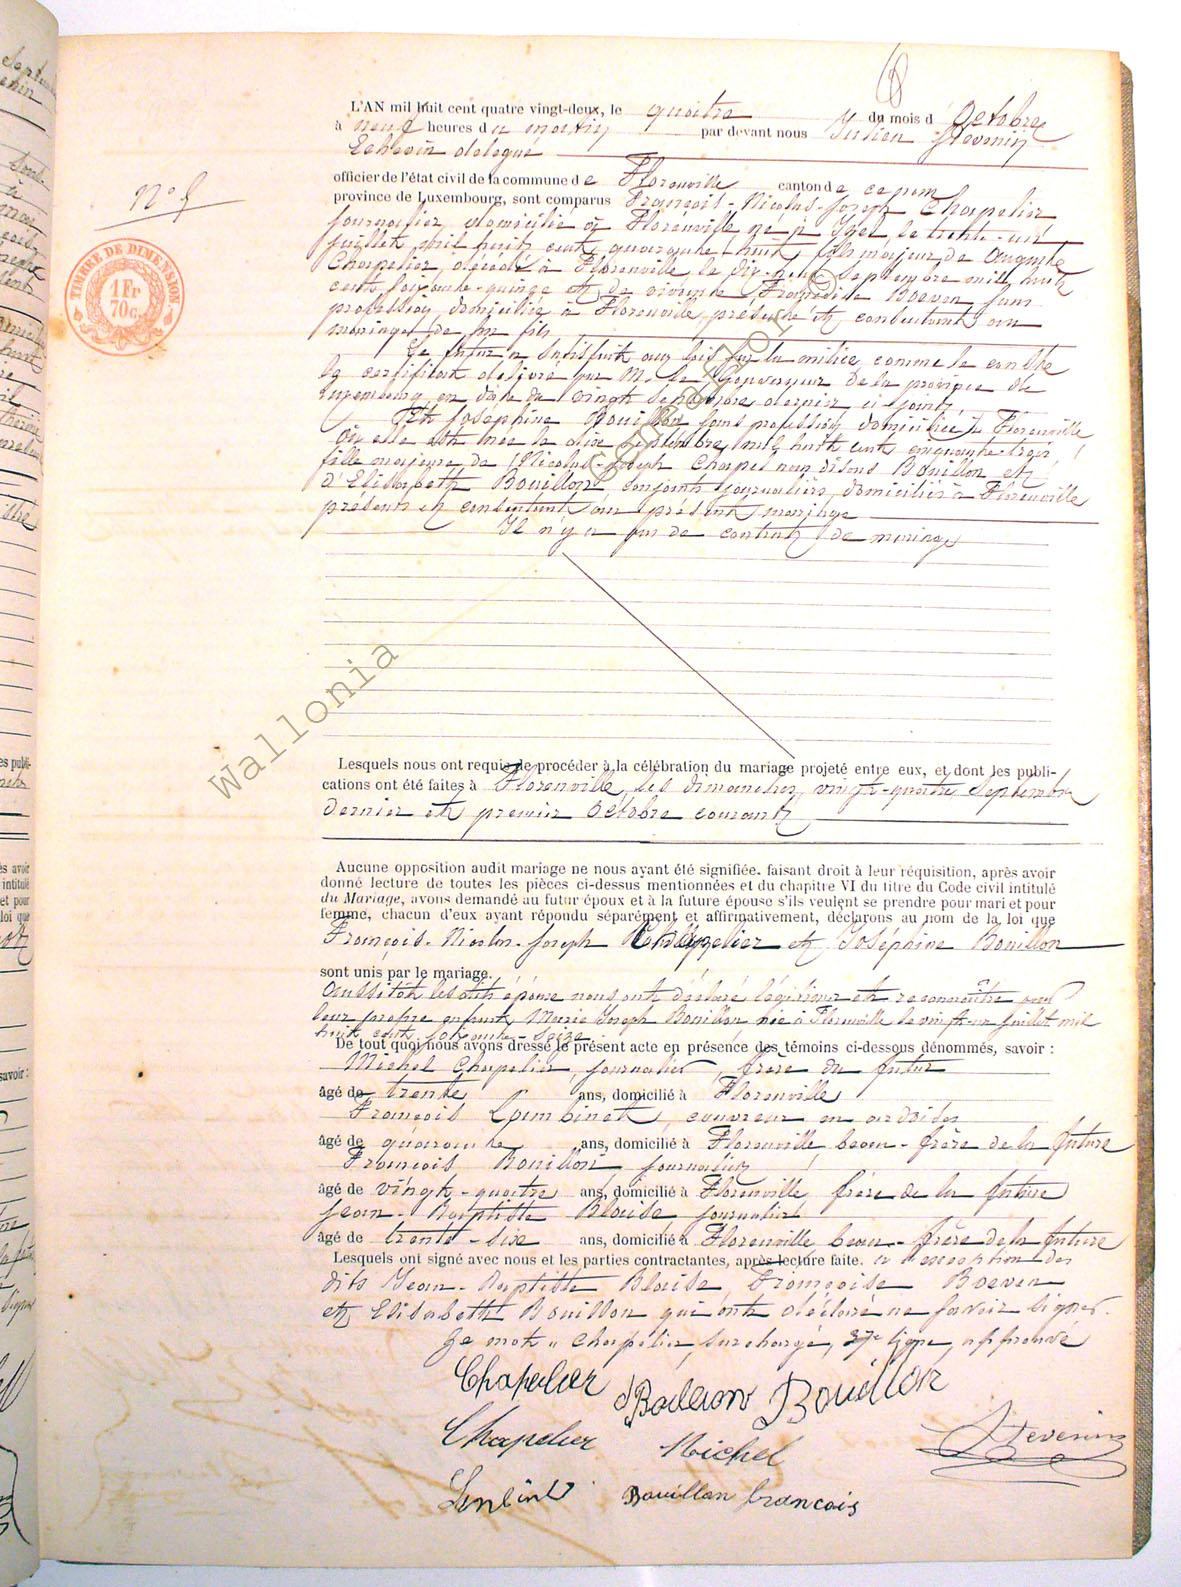 8
L'AN mil huit cent quatre vingt-deux, le quatre du mois d'Octobre
à neuf heures du matin par devant nous Julien Stevenin
Echevin délégué
officier de l'état civil de la commune de Florenville canton de ce nom
province de Luxembourg, sont comparus François-Nicolas-Joseph Chapelier
journalier, domicilié à Florenville né à Izel le trente-un
juillet mil huit cent quarante-huit, fils majeur de Auguste
Chapelier, décédé à Florenville le dix-neuf septembre mil huit
cent soixante-quinze et de vivante Françoise Boeven sans
profession, domiciliée à Florenville, présente et consentant au
mariage de son fils
Le futur a satisfait aux lois sur la milice comme le constate
le certificat délivré par M. le Gouverneur de la province de
Luxembourg en date du vingt septembre dernier ci-joint,
Et Joséphine Bouillon sans profession domiciliée à Florenville
où elle est née le dix septembre mil huit cent cinquante-trois,
fille majeure de Nicolas-Joseph Chapel non disons Bouillon et
d'Elisabeth Bouillon conjoints journaliers, domiciliés à Florenville
présents et consentant au présent mariage
Il n'y a pas de contrat de mariage
Lesquels nous ont requis de procéder à la célébration du mariage projeté entre eux, et dont les publi-
cations ont été faites à Florenville, les dimanches vingt-quatre septembre
dernier et premier Octobre courant,
Aucune opposition audit mariage ne nous ayant été signifiée. faisant droit à leur réquisition, après avoir
donné lecture de toutes les pièces ci-dessus mentionnées et du chapitre VI du titre du Code civil intitulé
du Mariage, avons demandé au futur époux et à la future épouse s'ils veulent se prendre pour mari et pour
femme, chacun d'eux ayant répondu séparément et affirmativement, déclarons au nom de la loi que
François-Nicolas-Joseph Chapelier et Joséphine Bouillon
sont unis par le mariage.
Aussitôt lesdits époux nous ont déclaré légitimer et reconnaître pour
leur propre enfant Marie Joseph Bouillon née à Florenville le vingt-un juillet mil
huit cent soixante-seize
De tout quoi nous avons dressé le présent acte en présence des témoins ci-dessous dénommés, savoir :
Michel Chapelier, journalier, frère du futur
âgé de trente ans, domicilié à Florenville
François Lambinet, couvreur en ardoises
âgé de quarante ans, domicilié à Florenville beau-frère de la future
François Bouillon journalier
âgé de vingt-quatre ans, domicilié à Florenville frère de la future
Jean-Baptiste Blaise journalier
âgé de trente-six ans, domicilié à Florenville beau-frère de la future
Lesquels ont signé avec nous et les parties contractantes, après lecture faite. à l'exception des
dits Jean-Baptiste Blaise, Françoise Boeven
et Elisabeth Bouillon qui ont déclaré ne savoir signer.
Le mot « Chapelier, surchargé, 27e ligne, approuvé
Chapelier Bouillon
Chapelier Michel Stevenin
Bouillon francois
N° 5
TIMBRE DE DIMENSION
1 Fr
70 c.
Wallonia